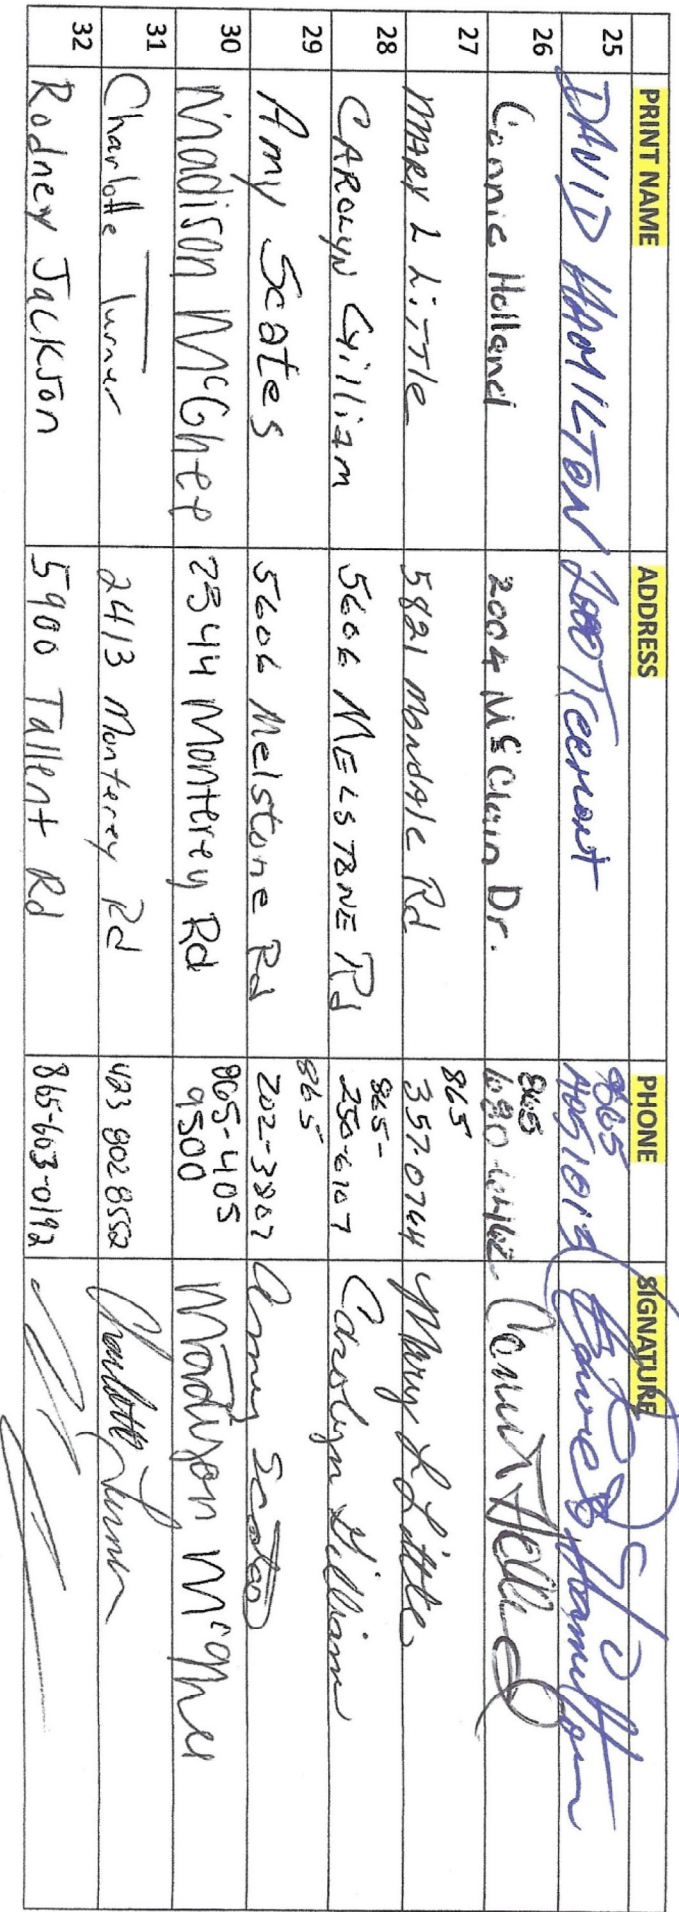 PRINT NAME ADDRESS PHONE SIGNATURE
25 DAVID HAMILTON 2000 Treemont 865 4051013 David Hamilton
26 Connie Holland 2004 McClain Dr. 865
27 MARY L LiTTLe 5821 Mondale Rd 865 357-0744 Mary L Little
28 CAROLYN Gilliam 5606 MELSTONE Rd 865- 250-6107 Carolyn Gilliam
29 Amy Scates 5606 Melstone Rd 865 202-3807 Amy Scates
30 Madison McGhee 2544 Monterey Rd 865-405 9500 Madison McGhee
31 Charlotte Turner 2413 Monterey Rd 423 802 8552 Charlotte Turner
32 Rodney Jackson 5900 Tallent Rd 865-603-0192